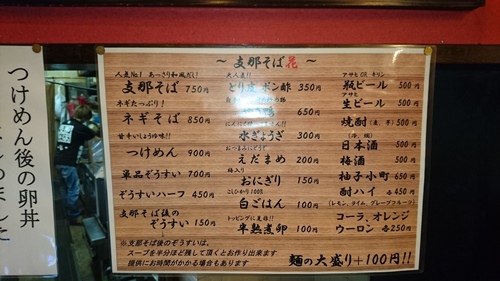 つけめん後の卵丼
～ 支那そば花 ～
人気No.1 あっさり和風だし!
支那そば 750円
ネギたっぷり!
ネギそば 850円
甘辛いしょうゆ味!!
つけめん 900円
単品ぞうすい 700円
ぞうすいハーフ 450円
支那そば後の
ぞうすい 150円
※支那そば後のぞうすいは、
スープを半分ほど残して頂くとお作り出来ます
提供にお時間がかかる場合もあります
大人気!!
とり皮 ポン酢 350円
650円
水ぎょうざ 300円
おつまみにどうぞ
えだまめ 200円
梅入り
おにぎり 150円
こしひかり100%
白ごはん 100円
トッピングに是非!!
半熟煮卵 100円
アサヒ OR キリン
瓶ビール 500円
アサヒ
生ビール 500円
焼酎(麦、芋) 500円
日本酒 500円
梅酒 500円
柚子小町 650円
酎ハイ 各450円
(レモン、ライム、グレープフルーツ)
コーラ、オレンジ
ウーロン 各250円
麺の大盛り+100円!!